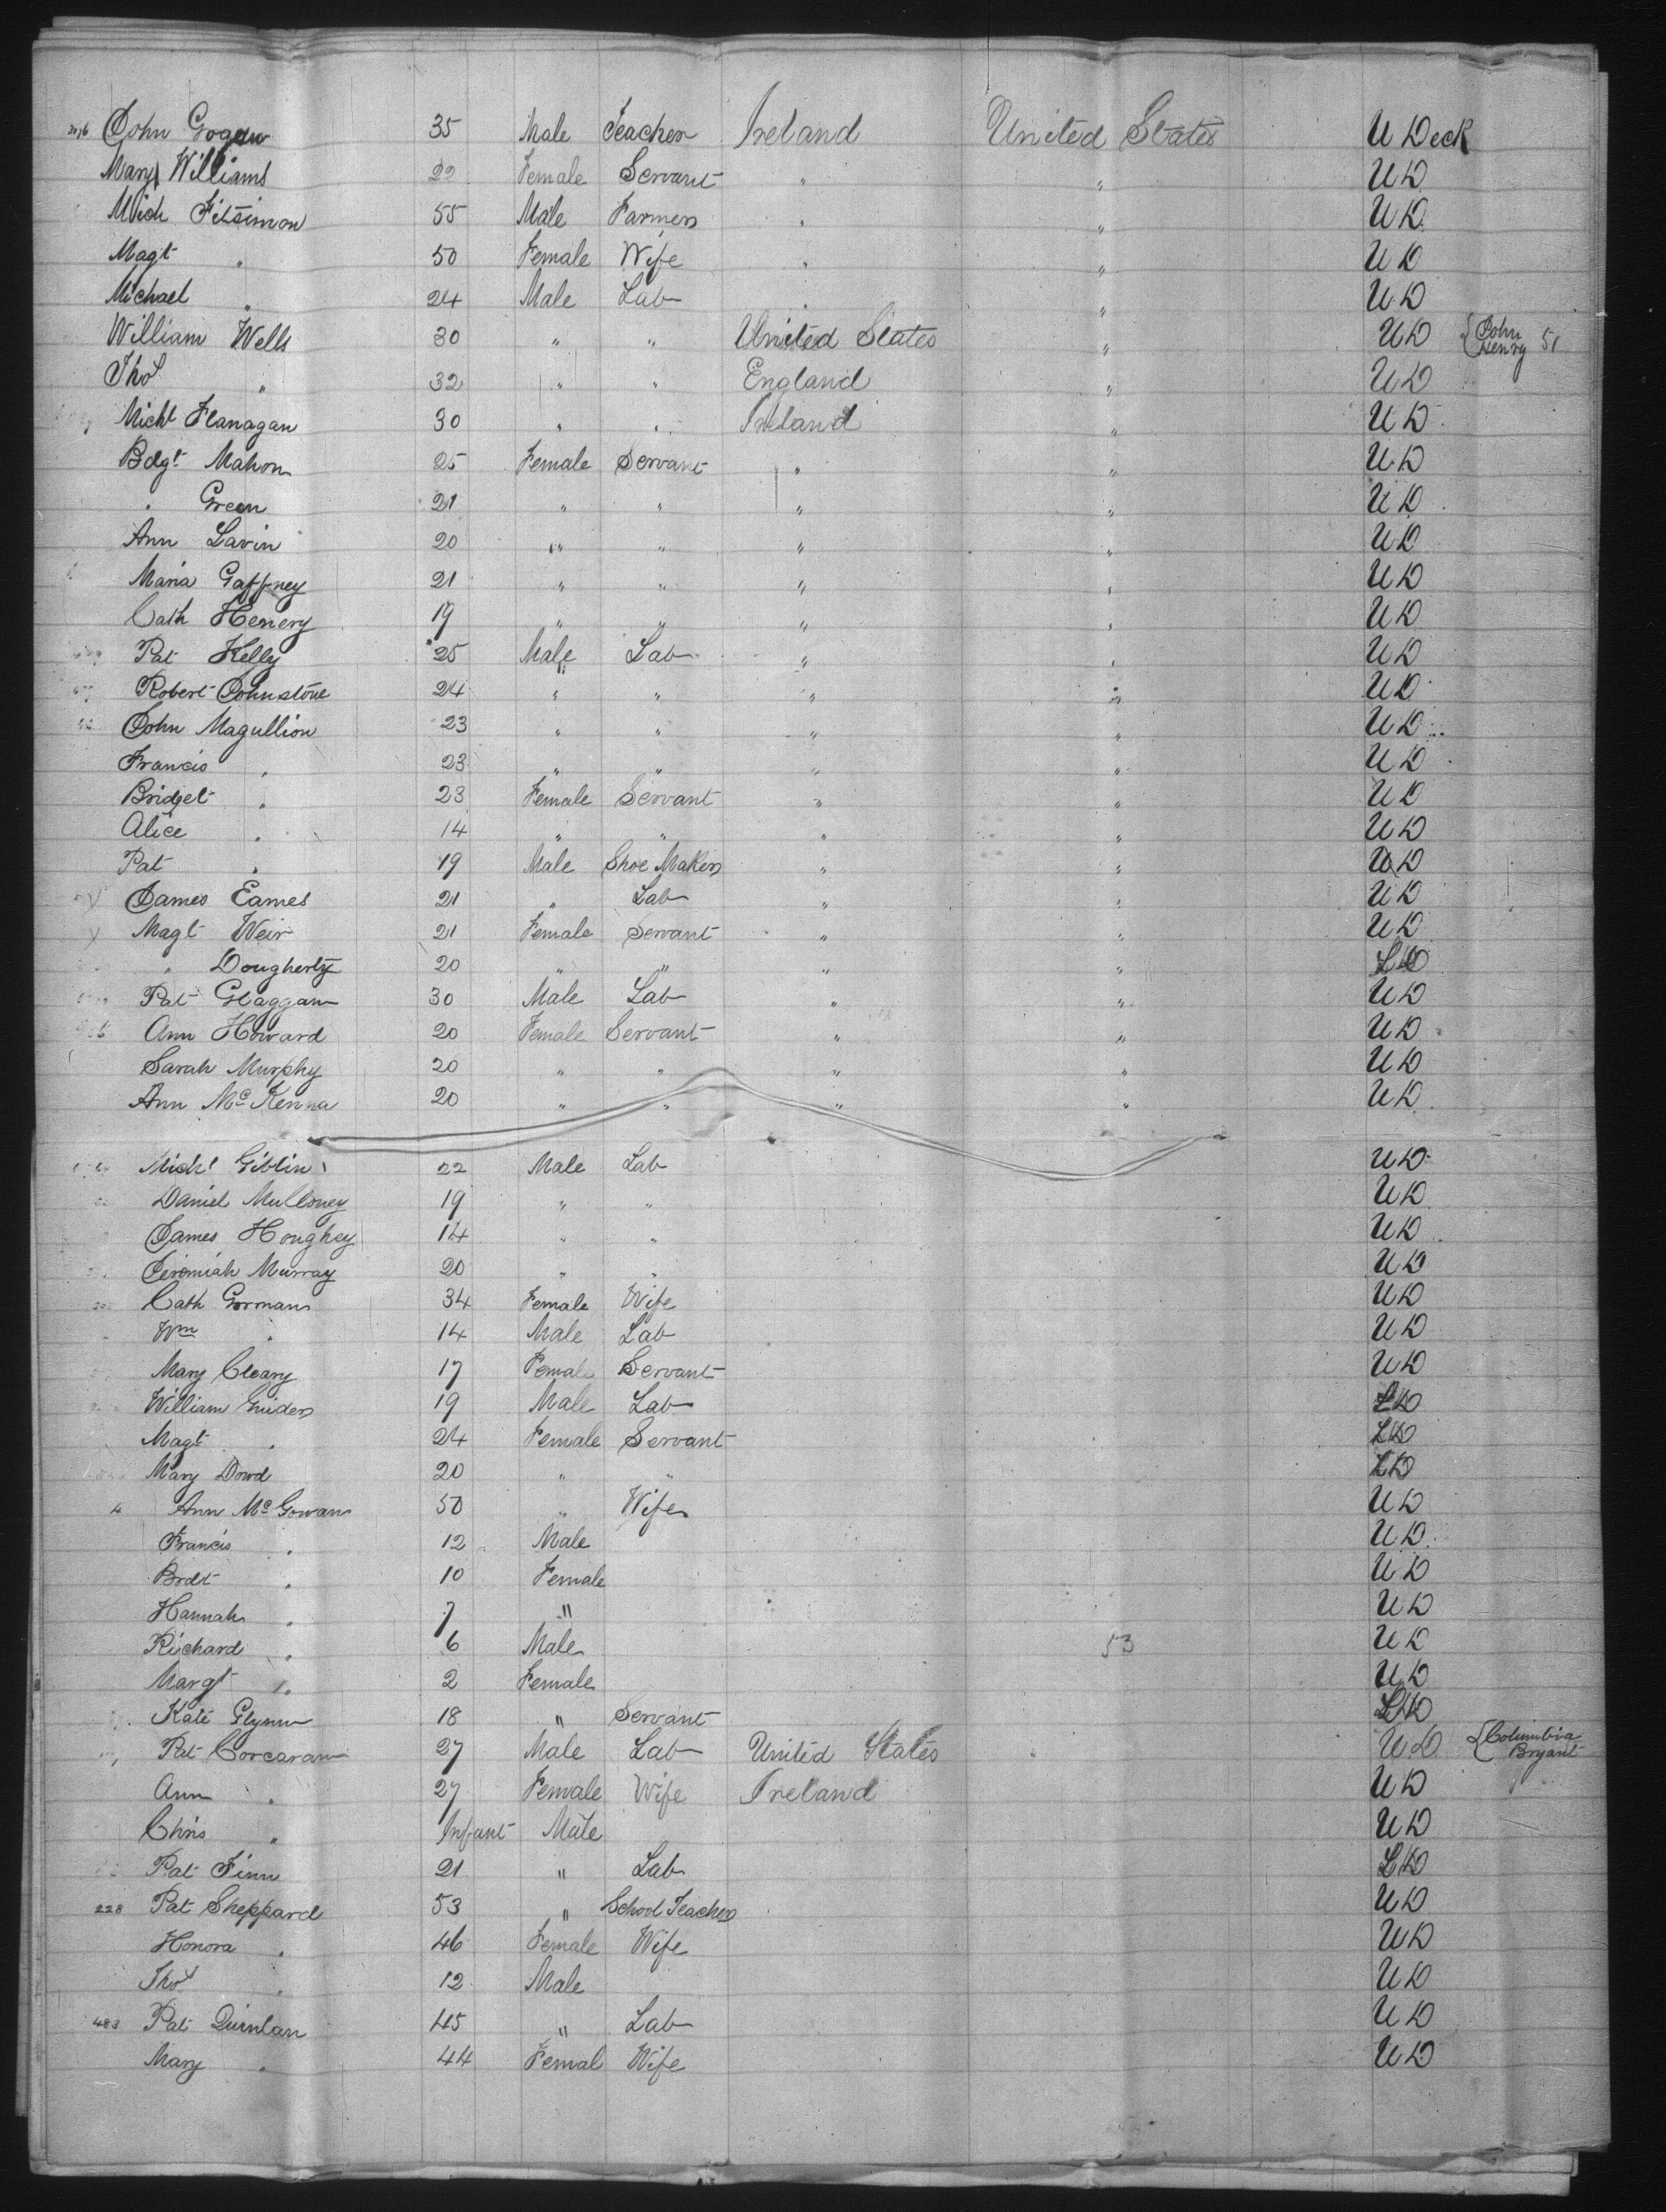 John Grogan 35 Male Teacher Ireland United States U Deck
Mary Williams 22 Female Servant " " U D
Mich Fitsimon 55 Male Farmer " " U D
Magt " 50 Female Wife " " U D
Michael " 24 Male Lab " " U D
William Wells 30 " " United States " U D { John Henry 51
Thos " 32 " " England " U D
Michl Flanagan 30 " " Ireland " U D
Bdgt Mahon 25 Female Servant " " U D
" Green 21 " " " " U D
Ann Lavin 20 " " " " U D
Maria Gaffney 21 " " " " U D
Cath Henery 19 " " " " U D
Pat Kelly 25 Male Lab " " U D
Robert Johnstone 24 " " " " U D
John Magullion 23 " " " " U D
Francis " 23 " " " " U D
Bridget " 23 Female Servant " " U D
Alice " 14 " " " " U D
Pat " 19 Male Shoe Maker " " U D
James Eames 21 " Lab " " U D
Magt Weir 21 Female Servant " " U D
" Dougherty 20 " " " " L D
Pat 30 Male Lab " " U D
Ann Howard 20 Female Servant " " U D
Sarah Murphy 20 " " " " U D
Ann McKenna 20 " " " " U D
Michl Giblin 22 Male Lab U D
Daniel Mulloney 19 " " U D
James Houghey 14 " " U D
Jeremiah Murray 20 " " U D
Cath Gorman 34 Female Wife U D
Wm " 14 Male Lab U D
Mary Cleary 17 Female Servant U D
William 19 Male Lab L D
Magt " 24 Female Servant L D
Mary Dowd 20 " " L D
4 Ann McGowan 50 " Wife U D
Francis " 12 Male U D
Brdt " 10 Female U D
Hannah " 7 " U D
Richard " 6 Male 53 U D
Margt " 2 Female U D
Kate Glynn 18 " Servant L D
Pat Corcaran 27 Male Lab United States U D { Columbia Bryant
Ann " 27 Female Wife Ireland U D
Chris " Infant Male U D
Pat Finn 21 " Lab L D
228 Pat Sheppard 53 " School Teacher U D
Honora " 46 Female Wife U D
Thos " 12 Male U D
483 Pat Quinlan 45 " Lab U D
Mary " 44 Femal Wife U D